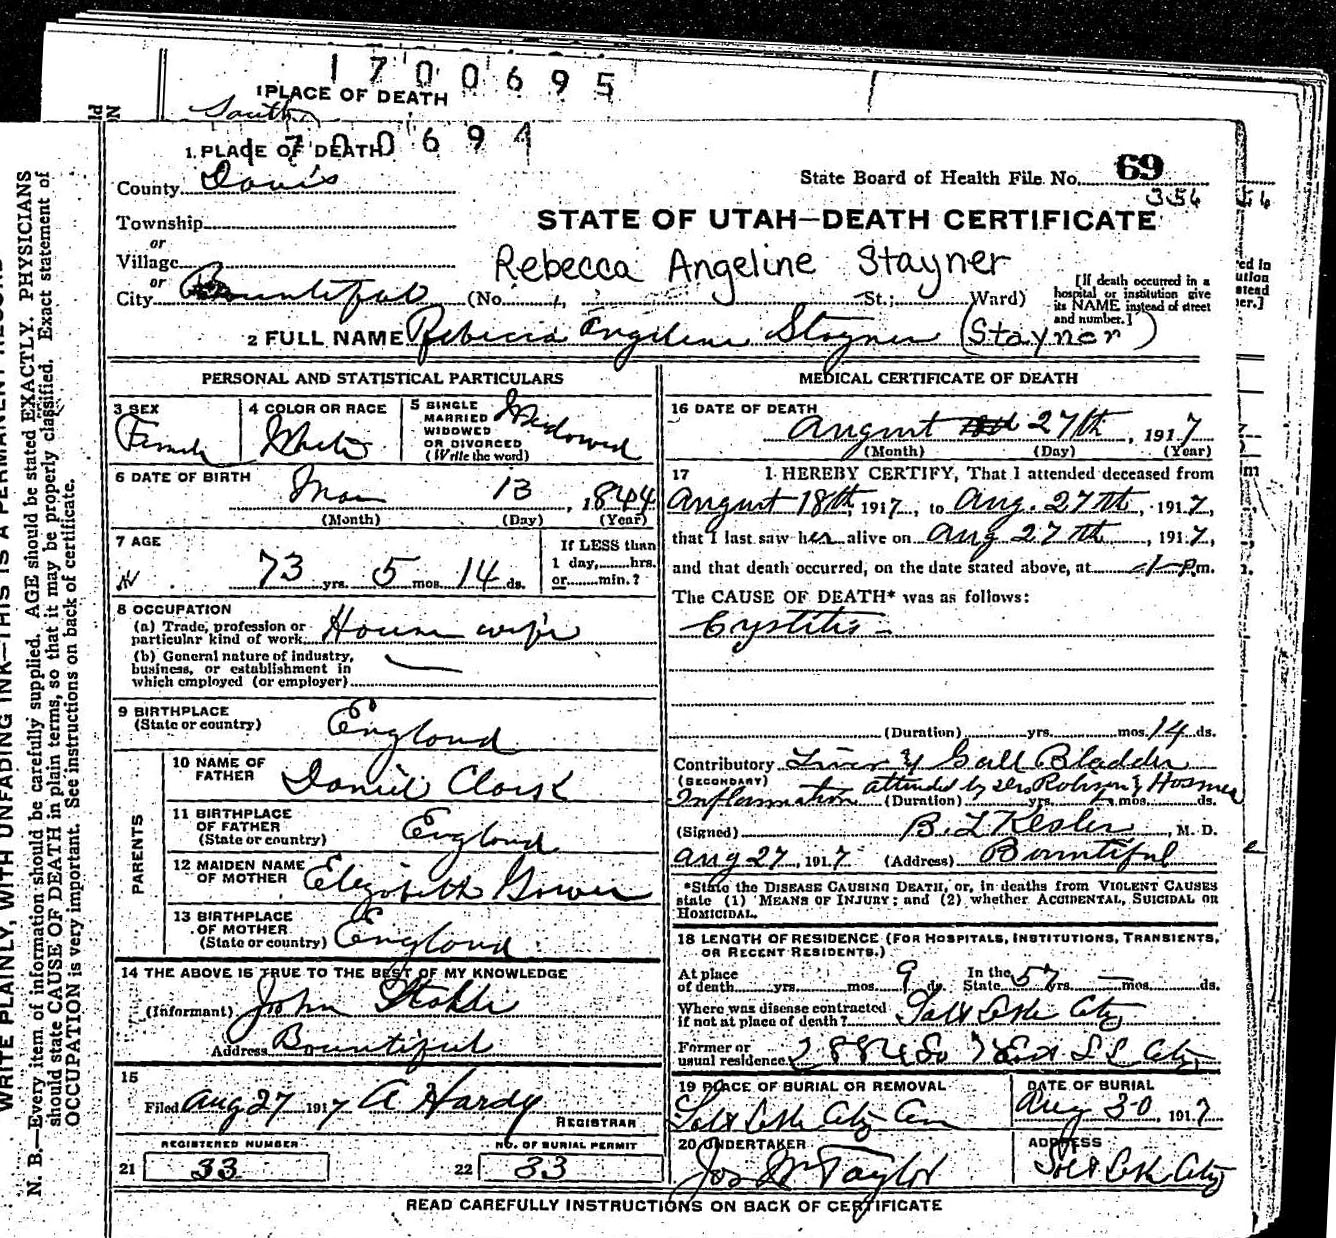 1700695
1 PLACE OF DEATH
South
1700694
1. PLACE OF DEATH
County Davis
State Board of Health File No. 69
354
Township
STATE OF UTAH—DEATH CERTIFICATE
or
Village
Rebecca Angeline Stayner
or
City Bountiful (No. St.; Ward)
[If death occurred in a hospital or institution give its NAME instead of street and number.]
2 FULL NAME Rebecca Angeline Stayner (Stayner)
PERSONAL AND STATISTICAL PARTICULARS
3 SEX
Female
4 COLOR OR RACE
White
5 SINGLE
MARRIED
WIDOWED
OR DIVORCED
(Write the word)
Widowed
6 DATE OF BIRTH
Mar 13, 1844
(Month) (Day) (Year)
7 AGE
73 yrs. 5 mos. 14 ds.
If LESS than
1 day, hrs.
or min.?
8 OCCUPATION
(a) Trade, profession or
particular kind of work House wife
(b) General nature of industry,
business, or establishment in
which employed (or employer)
9 BIRTHPLACE
(State or country)
England
PARENTS
10 NAME OF
FATHER
Daniel Clark
11 BIRTHPLACE
OF FATHER
(State or country)
England
12 MAIDEN NAME
OF MOTHER
Elizabeth Gower
13 BIRTHPLACE
OF MOTHER
(State or country)
England
14 THE ABOVE IS TRUE TO THE BEST OF MY KNOWLEDGE
(Informant) John
Address Bountiful
15
Filed Aug 27 1917 A Hardy
REGISTRAR
REGISTERED NUMBER
21 33
NO. OF BURIAL PERMIT
22 33
MEDICAL CERTIFICATE OF DEATH
16 DATE OF DEATH
August 27th, 1917
(Month) (Day) (Year)
17 I HEREBY CERTIFY, That I attended deceased from
August 18th, 1917, to Aug. 27th, 1917,
that I last saw her alive on Aug 27th, 1917,
and that death occurred, on the date stated above, at 1 P.m.
The CAUSE OF DEATH* was as follows:
Cystitis
(Duration) yrs. mos. 14 ds.
Contributory Liver & Gall Bladder
(SECONDARY)
Inflammation attended by Drs Robison & Hosmer
(Duration) yrs. mos. ds.
(Signed) B. L Kesler, M. D.
Aug 27, 1917 (Address) Bountiful
*State the DISEASE CAUSING DEATH, or, in deaths from VIOLENT CAUSES
state (1) MEANS OF INJURY; and (2) whether ACCIDENTAL, SUICIDAL or
HOMICIDAL.
18 LENGTH OF RESIDENCE (FOR HOSPITALS, INSTITUTIONS, TRANSIENTS,
OR RECENT RESIDENTS.)
At place of death yrs. mos. 9 ds. In the State 57 yrs. mos. ds.
Where was disease contracted
if not at place of death? Salt Lake City
Former or
usual residence 2884 So 7 East S L City
19 PLACE OF BURIAL OR REMOVAL
Salt Lake City Cem
DATE OF BURIAL
Aug 30, 1917
20 UNDERTAKER
Jos Wm Taylor
ADDRESS
Salt Lake City
READ CAREFULLY INSTRUCTIONS ON BACK OF CERTIFICATE
WRITE PLAINLY, WITH UNFADING INK—THIS IS A PERMANENT RECORD
N. B.—Every item of information should be carefully supplied. AGE should be stated EXACTLY. PHYSICIANS
should state CAUSE OF DEATH in plain terms, so that it may be properly classified. Exact statement of
OCCUPATION is very important. See instructions on back of certificate.